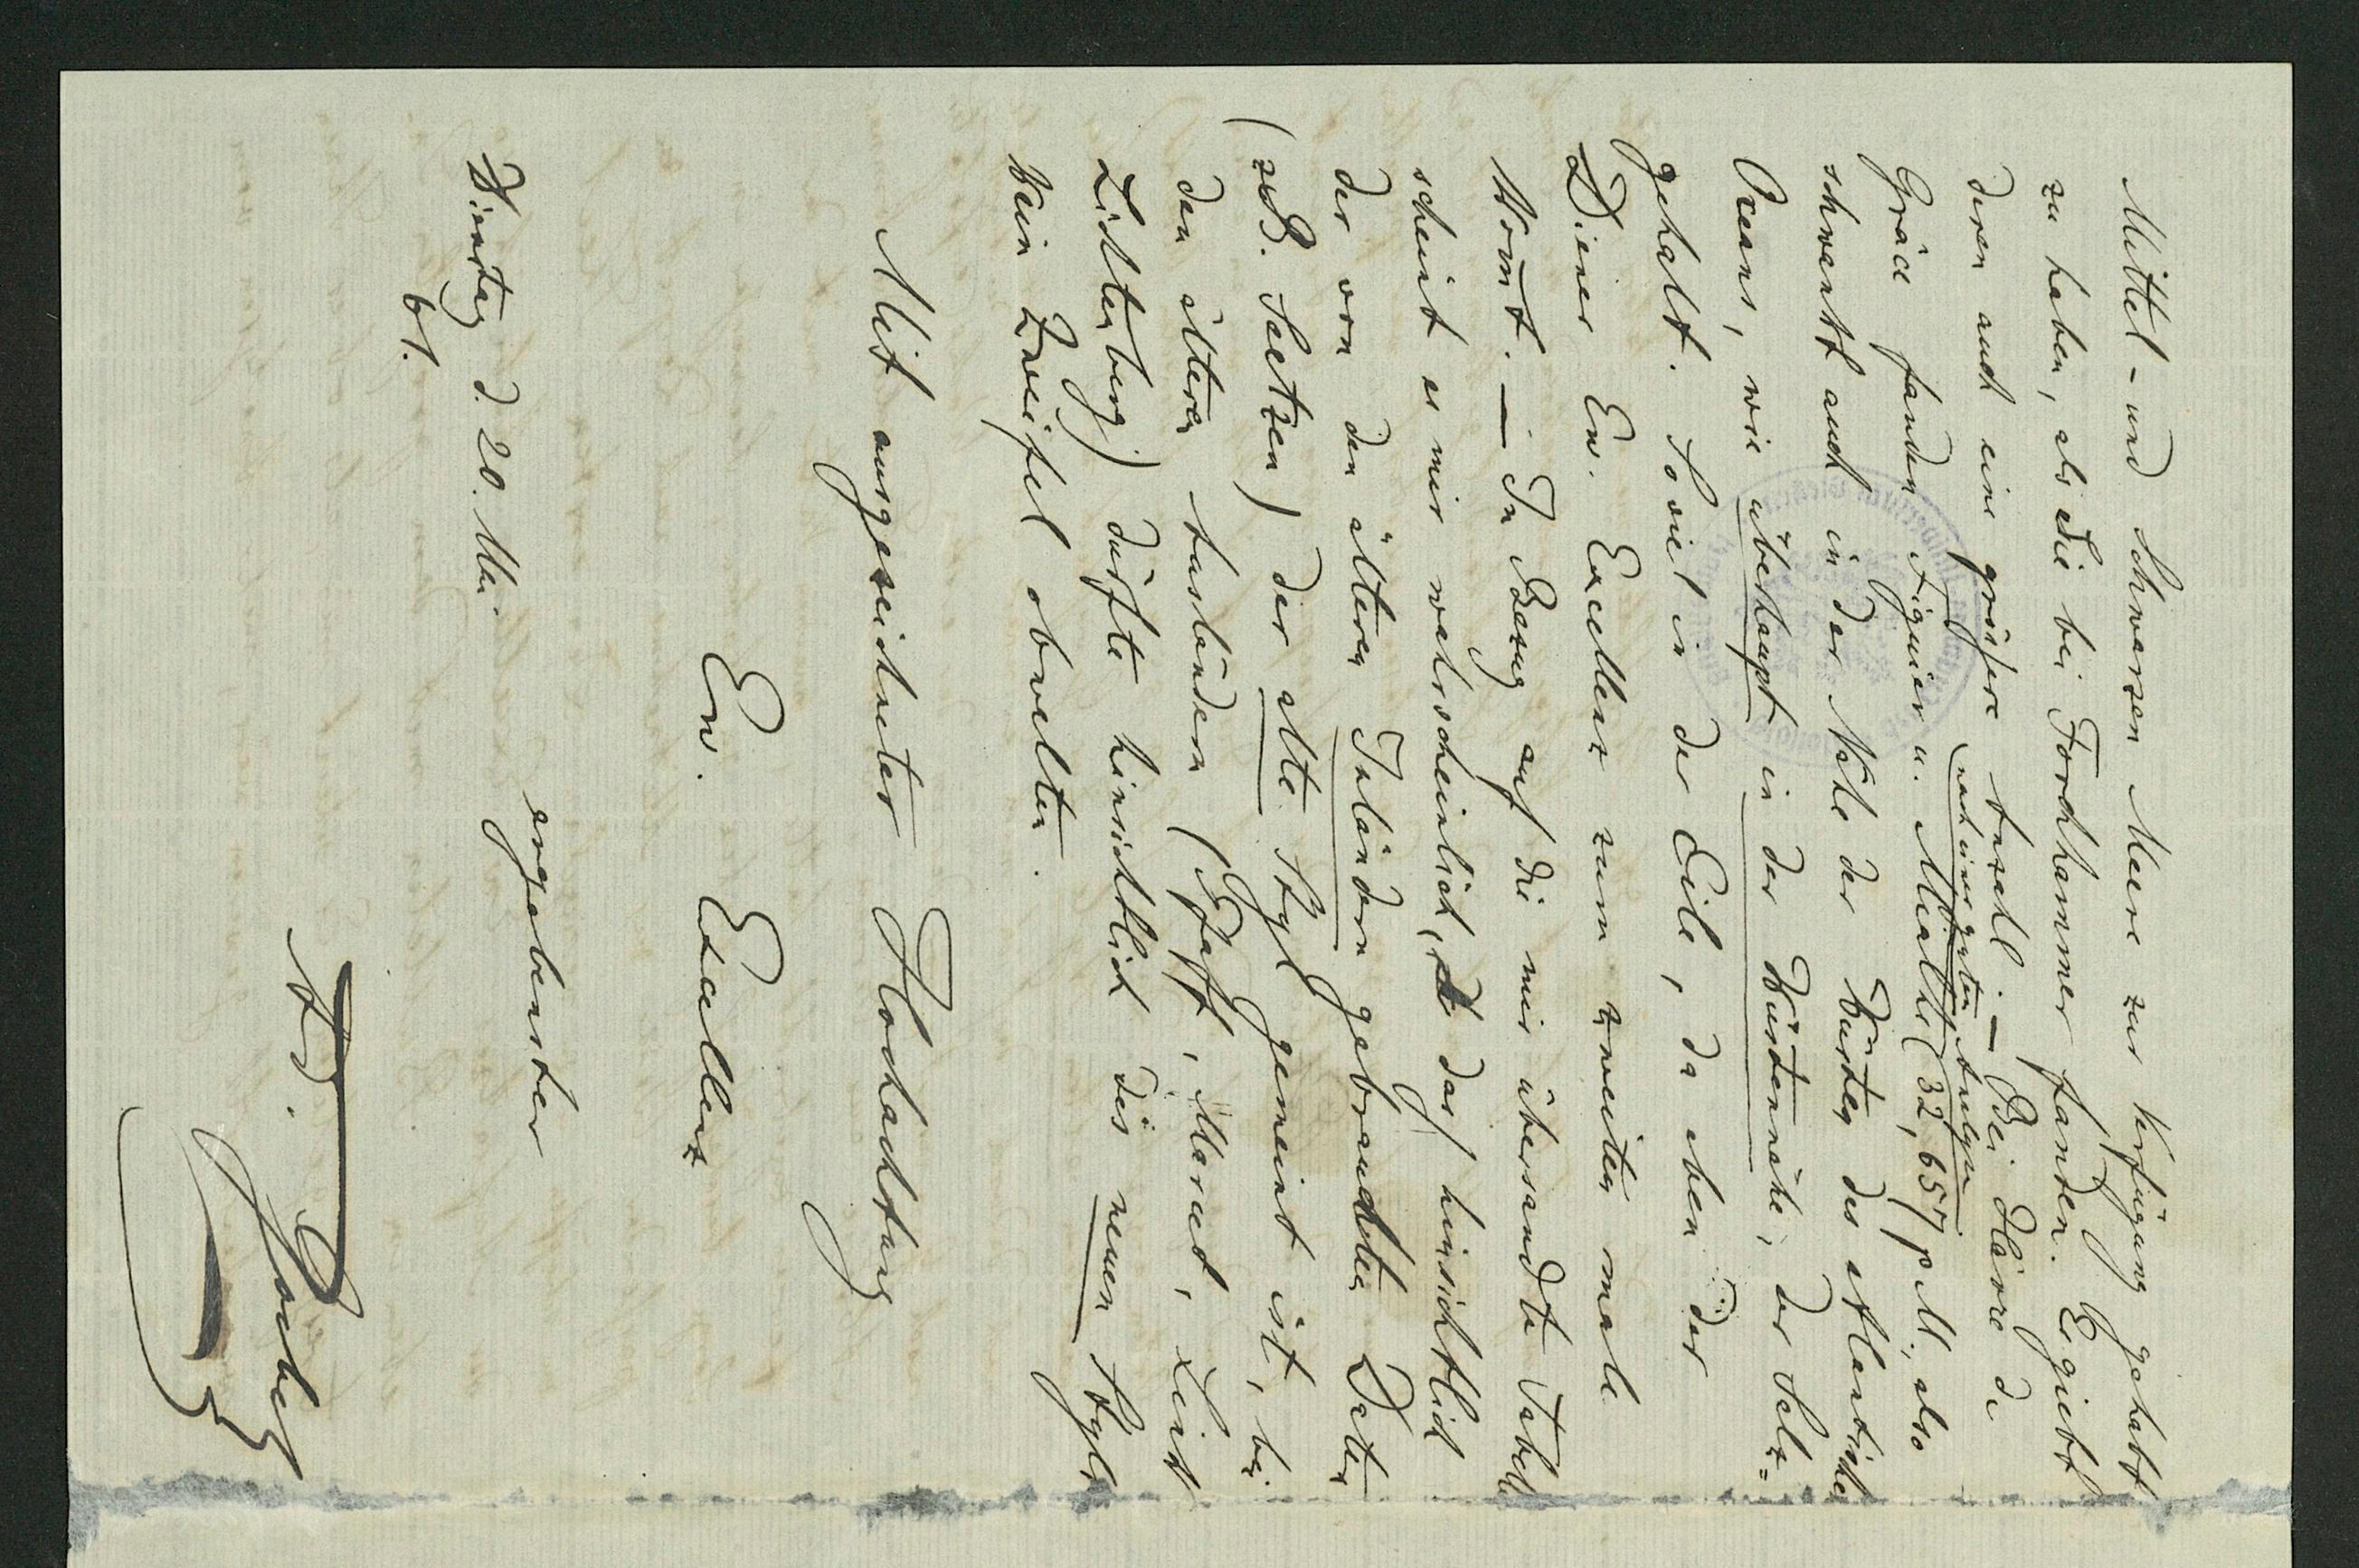 Mittel- und Schwarzen Meere zur Verfügung gehabt
zu haben, als die bei Forchhammer fanden. Ergiebt
deren auch eine größere Anzahl. — Bei Hâvre de
Grâce fanden Figuier u. Mialhe (32,657 p M., also
nach einer guten Analyse
schwankt auch in der Nähe der Küsten des atlantischen
Oceans, wie überhaupt in der Küstennähe, der Salz=
gehalt. Soviel in der Eile, da eben der
Diener Ew. Excellenz zum zweiten male
kom̅t. — In Bezug auf die mir übersandte Tabelle
scheint es mir wahrscheinlich, daß hinsichtlich
der von den älteren Inländern gebrauchten Daten
(z.B. Seetzen) der alte Styl gemeint ist, bei
den älteren Ausländern (Pfaff, Marcet,
Lichtenberg) dürfte hinsichtlich des neuen Styls
kein Zweifel obwalten.
Mit ausgezeichneter Hochachtung
Ew. Excellenz
ergebenster
Dienstag d. 20. Mai.
61.
A. Goebel